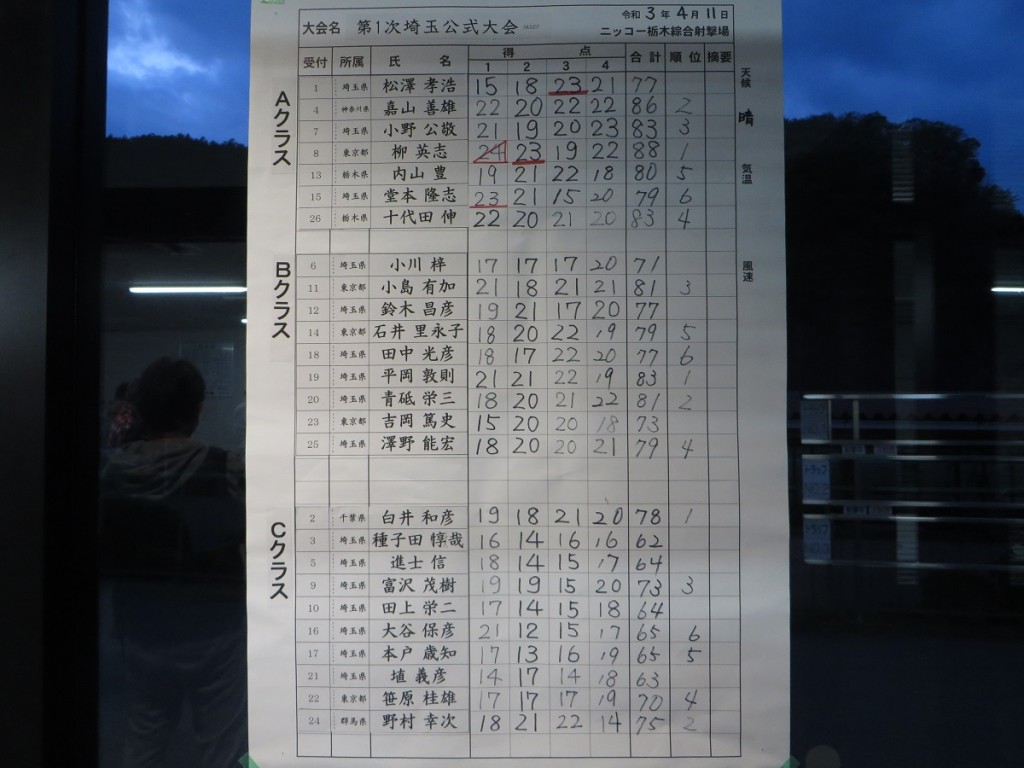 大会名 第1次埼玉公式大会 令和 3 年 4 月 11 日
ニッコー栃木綜合射撃場
受付 所属 氏 名 得 点 合計 順位 摘要
1 2 3 4
天候 晴
気温
風速
Aクラス
1 埼玉県 松澤 孝浩 15 18 23 21 77
4 神奈川県 嘉山 善雄 22 20 22 22 86 2
7 埼玉県 小野 公敬 21 19 20 23 83 3
8 東京都 柳 英志 24 23 19 22 88 1
13 栃木県 内山 豊 19 21 22 18 80 5
15 埼玉県 堂本 隆志 23 21 15 20 79 6
26 栃木県 十代田 伸 22 20 21 20 83 4
Bクラス
6 埼玉県 小川 梓 17 17 17 20 71
11 東京都 小島 有加 21 18 21 21 81 3
12 埼玉県 鈴木 昌彦 19 21 17 20 77
14 東京都 石井 里永子 18 20 22 19 79 5
18 埼玉県 田中 光彦 18 17 22 20 77 6
19 埼玉県 平岡 敦則 21 21 22 19 83 1
20 埼玉県 青砥 栄三 18 20 21 22 81 2
23 東京都 吉岡 篤史 15 20 20 18 73
25 埼玉県 澤野 能宏 18 20 20 21 79 4
Cクラス
2 千葉県 白井 和彦 19 18 21 20 78 1
3 埼玉県 種子田 惇哉 16 14 16 16 62
5 埼玉県 進士 信 18 14 15 17 64
9 埼玉県 富沢 茂樹 19 19 15 20 73 3
10 埼玉県 田上 栄二 17 14 15 18 64
16 埼玉県 大谷 保彦 21 12 15 17 65 6
17 埼玉県 本戸 歳知 17 13 16 19 65 5
21 埼玉県 埴 義彦 14 17 14 18 63
22 東京都 笹原 桂雄 17 17 17 19 70 4
24 群馬県 野村 幸次 18 21 22 14 75 2
トラップ
トラップ